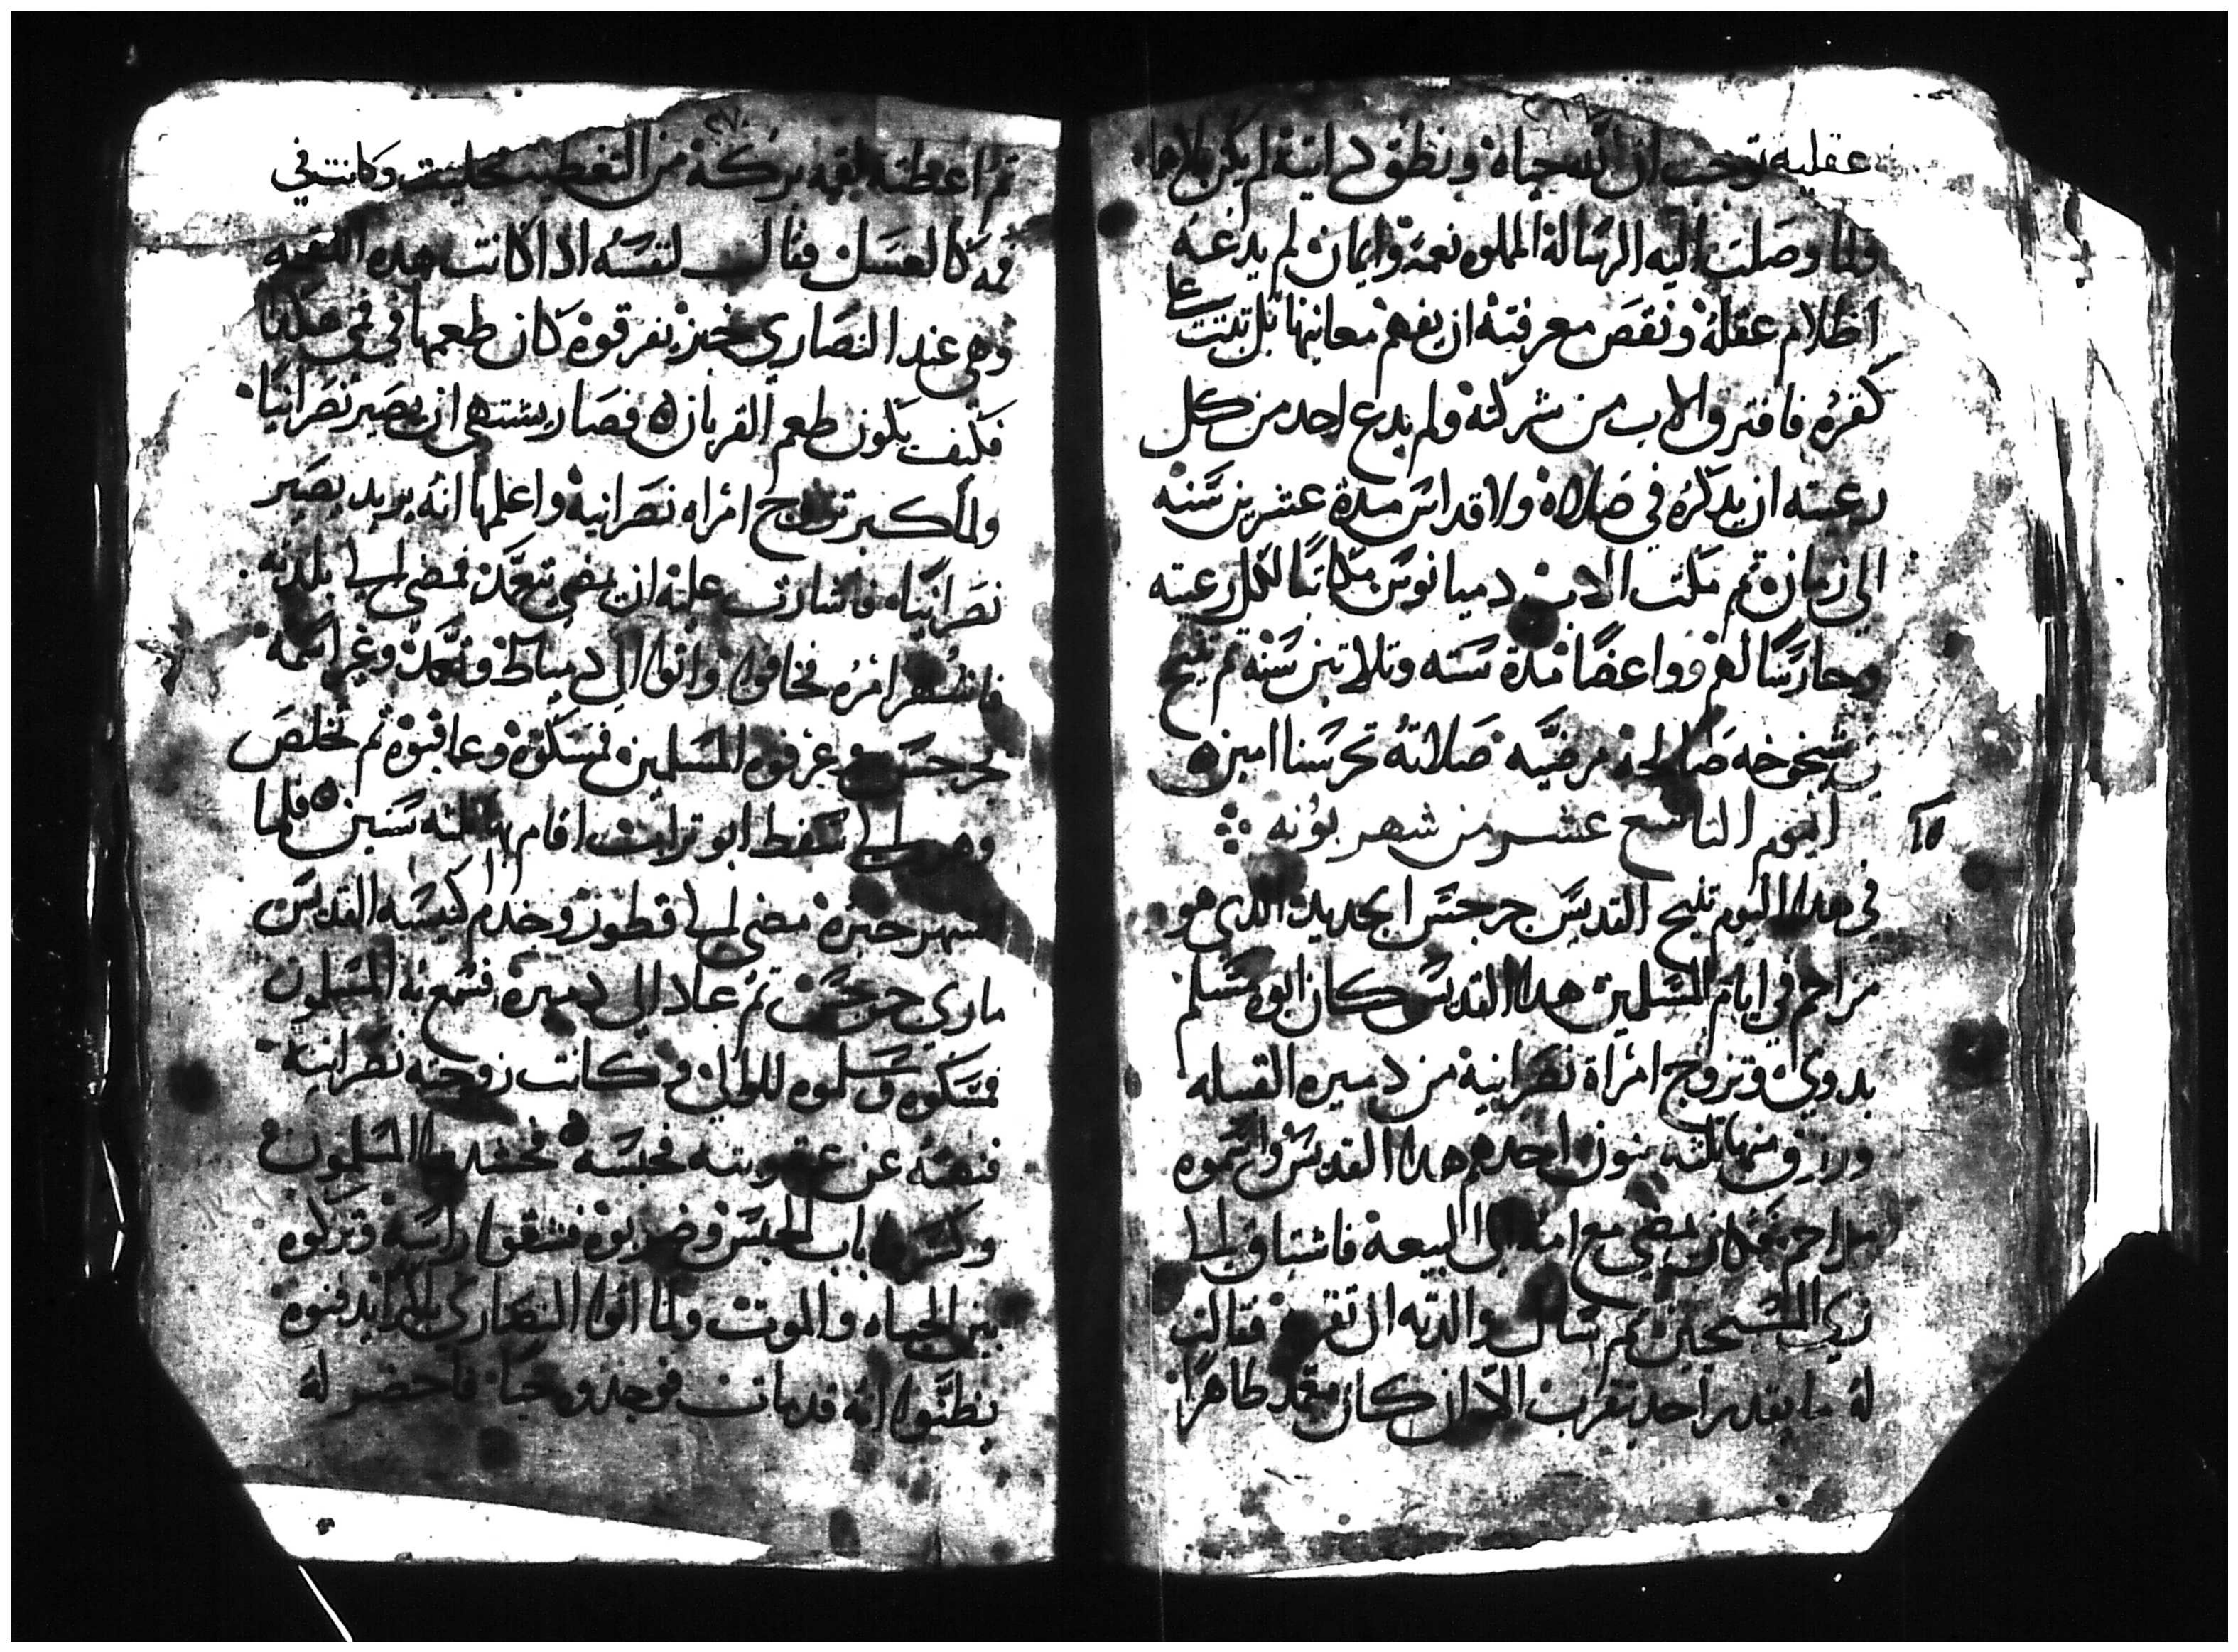 عقليه توجب ان لله حياة ونطق دانية لم يكن
ولما وصلت اليه الرسالة المملوه نعمة وايمان لم يدعه
اظلام عقله ونقص معرفته ان يفهم معانيها بل تبتت على
كفره فافترق الاب من شركته ولم يدع احد من كل
رعيته ان يدكره في صلاة ولا قداس مدة عشرين سنه
الي زمان تم مكث الاب دميانوس مكاتبا لكل رعيته
وحارسا لهم وواعضا مدة سته وتلاتين سنه تم تنيح
بشيخوخه صالحة مرضيه صلاته تحرسنا امين
١٩
اليوم التاسع عشر من شهر بوونه
في هدا اليوم تنيح القديس جرجس الجديد الدي هو
مزاحم في ايام المسلمين هدا القديس كان ابوه مسلم
بدوي وتزوج امراة نصرانية من دميره القبليه
ورزق منها تلته بنون احدهم هدا القديس واسموه
مزاحم فكان يمضي مع امه الي البيعة فاشتاق الي
زي المسيحيين تم سال والدته ان تقربه فقالت
له ما يقدر احد يتقرب الا ان كان معمد طاهرا
٢٧٠
تم اعطته لقمه بركة من التغطيس وكانت في
فمه كالعسل فقال لنفسه ادا كانت هده اللقمه
وهي عند النصاري خبز يفرقوه كان طعمها في فمي هكدا
فكيف يكون طعم القربان فصار يشتهي ان يصير نصرانيا
ولما كبر تزوج امراه نصرانية واعلمها انه يريد يصير
نصرانيا فاشارت عليه ان يمضي يتعمد فمضي الي بلدته
فاشتهر امره فخافوا واتوا الي دمياط وتعمد وغير اسمه
لجرجس عرفوه المسلمين فمسكوه وعاقبوه تم تخلص
ومضي الي سفط ابو تراب اقام بها تلته سنين فلما
اشتهر خبره مضي الي قطور وخدم كنيسه القديس
ماري جرجس تم عاد الي دميره فسمع به المسلمون
فمسكوه وسلموه للوالي وكانت زوجته نصرانية
فنهته عن عقوبته فحبسه فحشدوا المسلمون
وكسروا باب الحبس وضربوه فشقوا راسه وتركوه
بين الحياه والموت ولما اتوا النصاري باكرا يدفنوه
يظنوا انه قد مات فوجدوه حيا فاحضر له